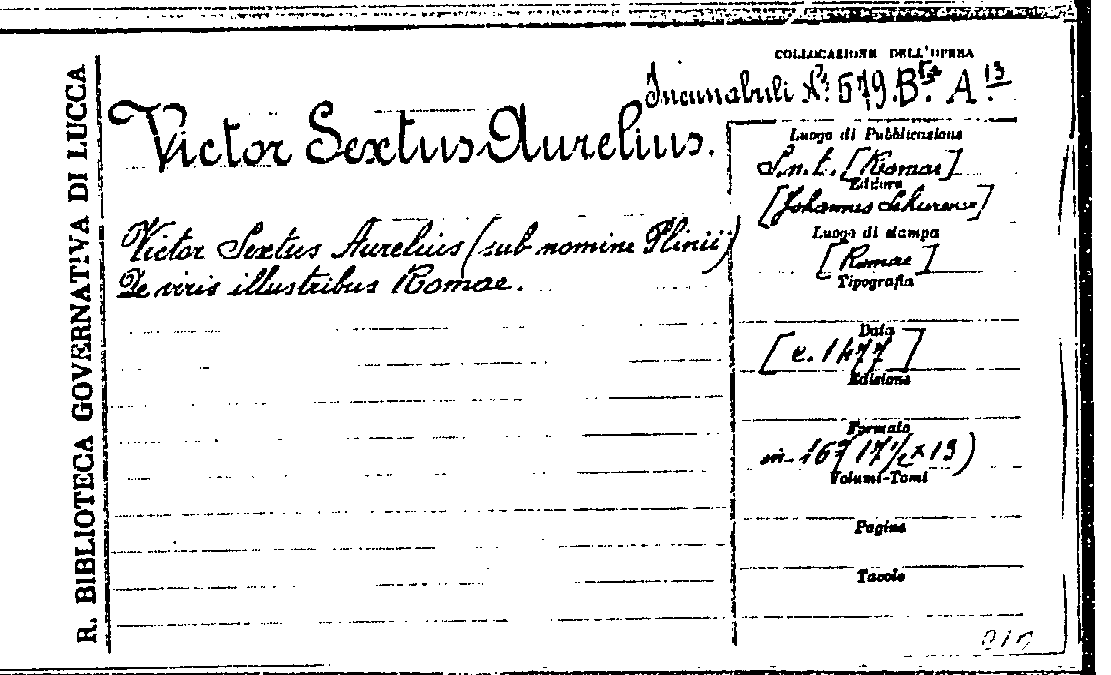 R. BIBLIOTECA GOVERNATIVA DI LUCCA
COLLOCAZIONE DELL'OPERA
Incunabuli N.° 579. B.ta A. 13
Victor Sextus Aurelius.
Victor Sextus Aurelius (sub nomine Plinii)
De viris illustribus Romae.
Luogo di Pubblicazione
S.n.t. [Romae]
Editore
[Johannes
Luogo di stampa
[Romae]
Tipografia
Data
[c. 1477]
Edizione
Formato
in-16? (17½ x 13)
Volumi-Tomi
Pagine
Tavole